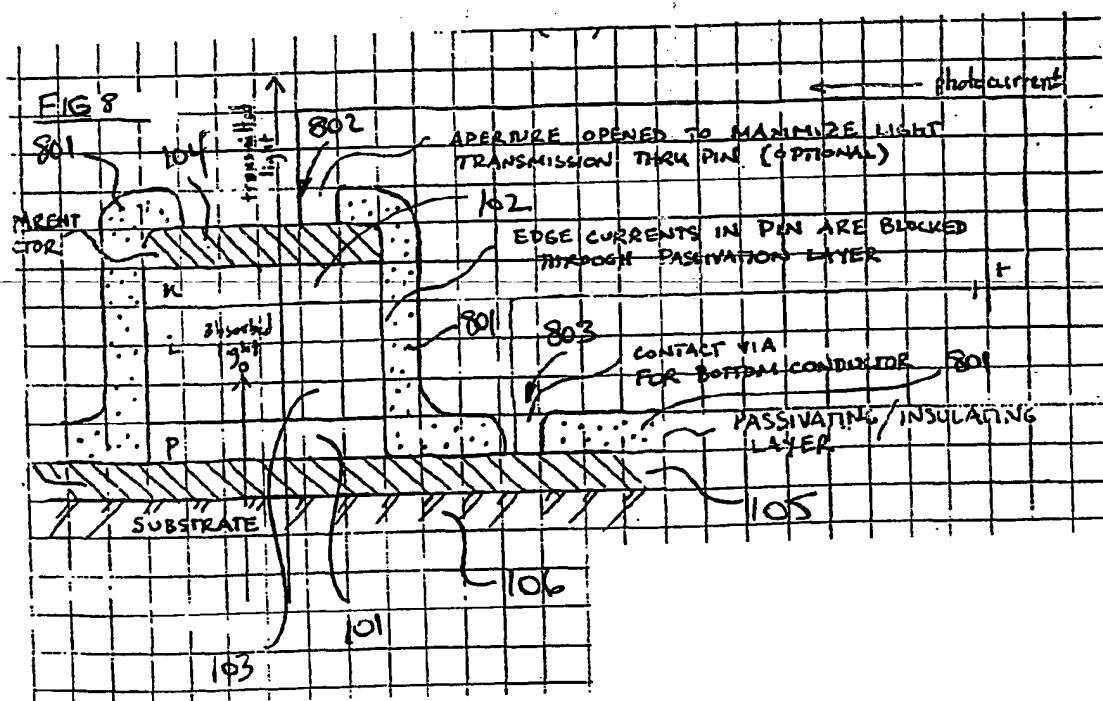 photocurrent
FIG 8
801
104
transmitted
light
802
APERTURE OPENED TO MAXIMIZE LIGHT
TRANSMISSION THRU PIN (OPTIONAL)
102
PARENT
CTOR
EDGE CURRENTS IN PIN ARE BLOCKED
THROUGH PASSIVATION LAYER
n
+
i
absorbed
ght
801
803
CONTACT VIA
FOR BOTTOM CONDUCTOR
801
PASSIVATING/INSULATING
LAYER
P
SUBSTRATE
105
106
101
103